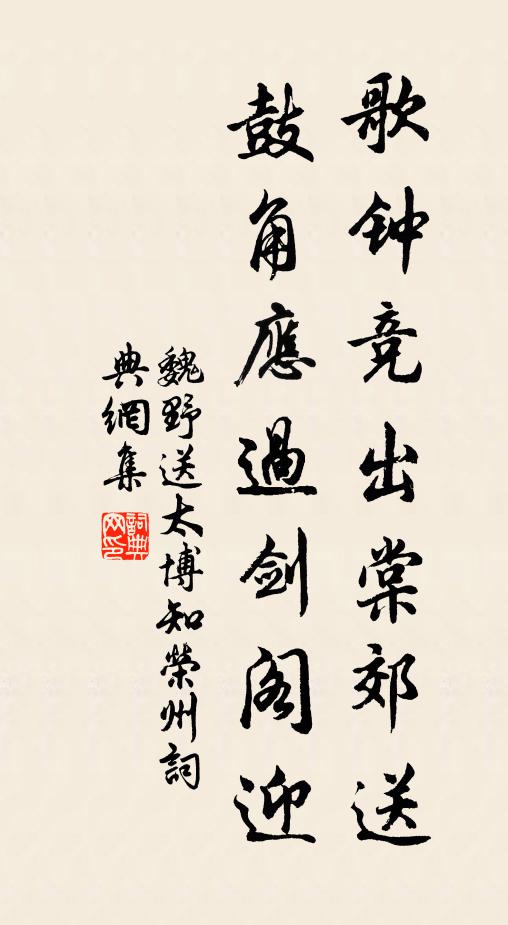 歌钟竞出棠郊送
鼓角應過剑阁迎
魏野送太博知榮州詞
典網集
詞典
网印